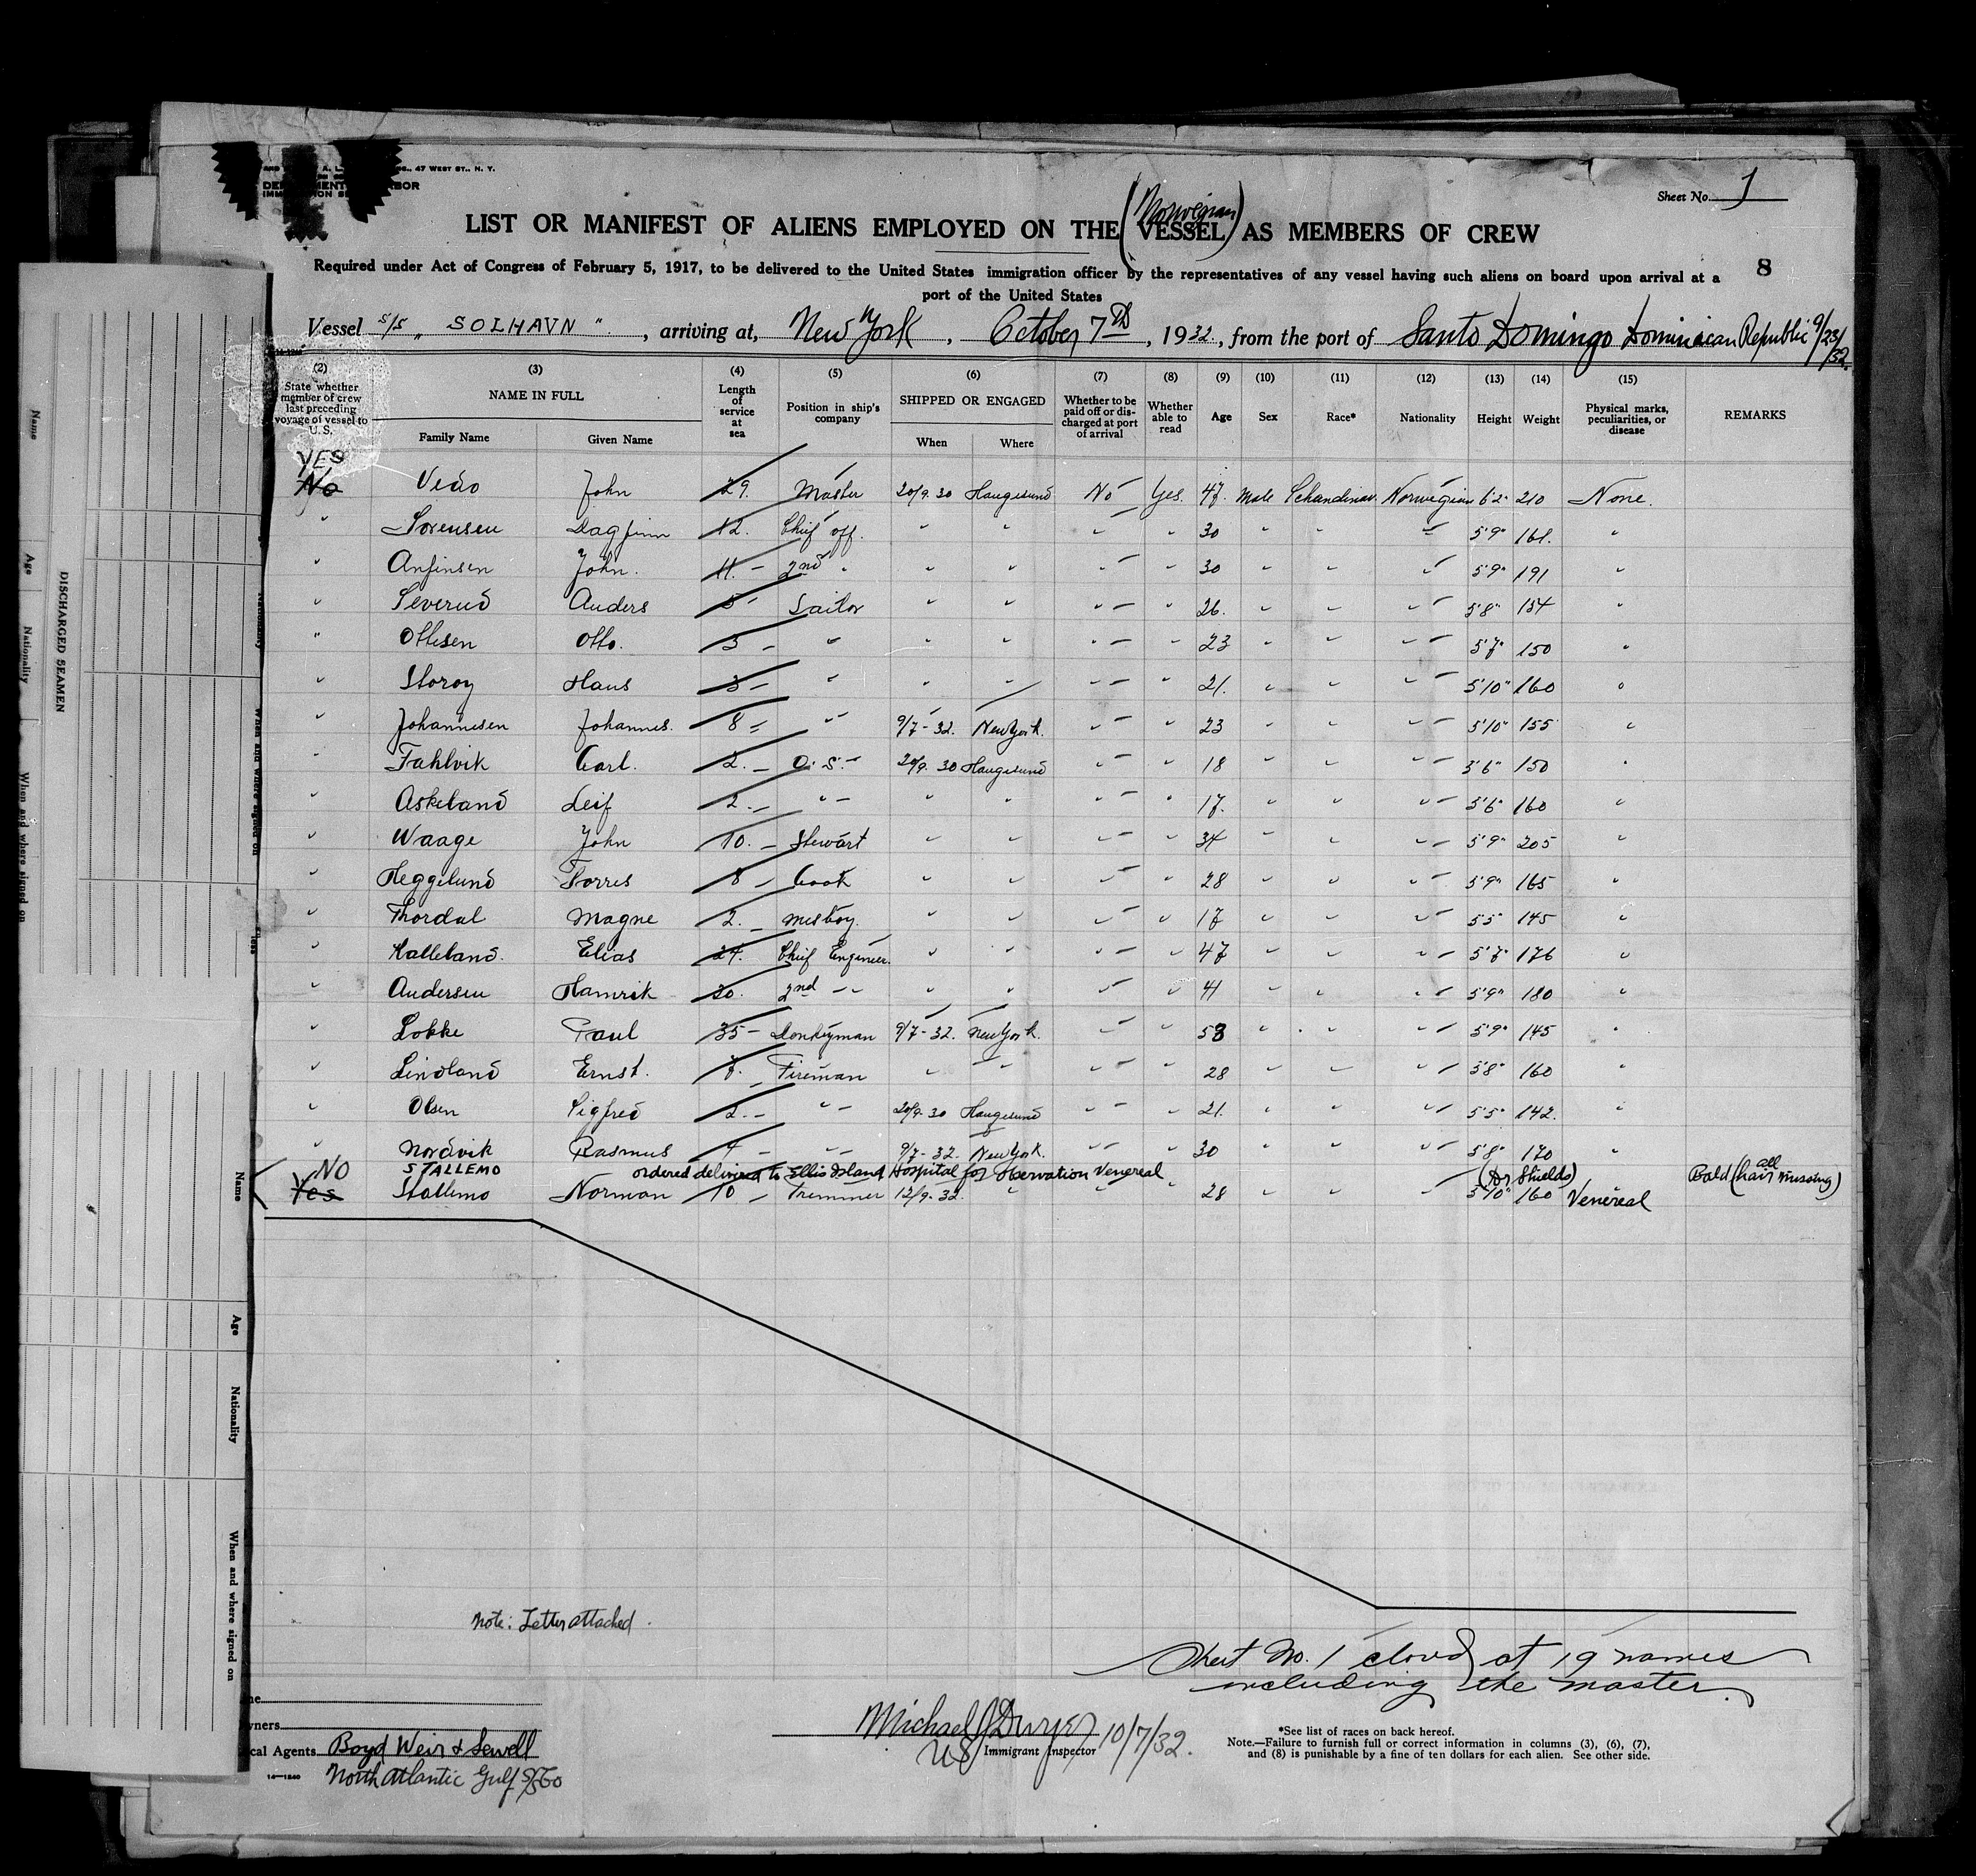 47 WEST ST., N. Y.
Sheet No. 1
(Norwegian)
LIST OR MANIFEST OF ALIENS EMPLOYED ON THE VESSEL AS MEMBERS OF CREW
Required under Act of Congress of February 5, 1917, to be delivered to the United States immigration officer by the representatives of any vessel having such aliens on board upon arrival at a
port of the United States
8
Vessel S/S " SOLHAVN " , arriving at, New York , October 7th , 1932, from the port of Santo Domingo Dominican Republic 9/23/32.
(2) (3) (4) (5) (6) (7) (8) (9) (10) (11) (12) (13) (14) (15)
State whether member of crew last preceding voyage of vessel to U.S. NAME IN FULL Length of service at sea Position in ship's company SHIPPED OR ENGAGED Whether to be paid off or discharged at port of arrival Whether able to read Age Sex Race* Nationality Height Weight Physical marks, peculiarities, or disease REMARKS
Family Name Given Name When Where
YES
No John 29. Master 20/9.30 Haugesund No Yes. 47. Male Schandinav. Norwegian 6'2" 210 None.
" Sorensen Dagfinn 12. Chief off. " " " " 30 " " " 5'9" 161. "
" Anfinsen John. 11. - 2nd " " " " " 30 " " " 5'9" 191 "
" Severud Anders 5 - Sailor " " " " 26. " " " 5'8" 154 "
" Ottesen Otto. 3 - " " " " " 23 " " " 5'7" 150 "
" Storoy Hans 3 - " " " " " 21. " " " 5'10" 160 "
" Johannesen Johannes. 8 - " 9/7-32. New York. " " 23 " " " 5'10" 155 "
" Fahlvik Carl. 2. - O.S. - 20/9.30 Haugesund " " 18 " " " 5'6" 150 "
" Askeland Leif 2. - " - " " " " 17. " " " 5'6" 160 "
" Waage John 10. - Stewart " " " " 34 " " " 5'9" 205 "
" Heggelund Torres 8 - Cook " " " " 28 " " " 5'9" 165 "
" Thordal Magne 2. - Mesboy. " " " " 17 " " " 5'5" 145 "
" Kalleland. Elias 24. Chief Engineer. " " " " 47 " " " 5'7" 176 "
" Andersen Hamrik 20. 2nd " " " " " 41 " " " 5'9" 180 "
" Lokke Paul 35 - Donkeyman 9/7-32. New York. " " 53 " " " 5'9" 145 "
" Lindland Ernst. 7. - Fireman " " " " 28 " " " 5'8" 160 "
" Olsen Sigfred 2. - " - 20/9.30 Haugesund " " 21. " " " 5'5" 142. "
" Nordvik Rasmus 4 - " - 9/7-32. New York. " " 30 " " " 5'8" 170 "
NO STALLEMO ordered delivered to Ellis Island Hospital for Observation Venereal (Dr Shields) Bald (all hair missing)
Yes Stallemo Norman 10 - Tremmer 12/9.32. " " " 28 " " " 5'10" 160 Venereal
Note: Letter attached.
Sheet No. 1 closed at 19 names
including the master.
Michael J Dwyer 10/7/32.
US Immigrant Inspector
Local Agents Boyd Weir & Sewell
North Atlantic Gulf S/S Co
*See list of races on back hereof.
Note.—Failure to furnish full or correct information in columns (3), (6), (7),
and (8) is punishable by a fine of ten dollars for each alien. See other side.
DISCHARGED SEAMEN
Name
Age
Nationality
When and where signed on
Name
Age
Nationality
When and where signed on